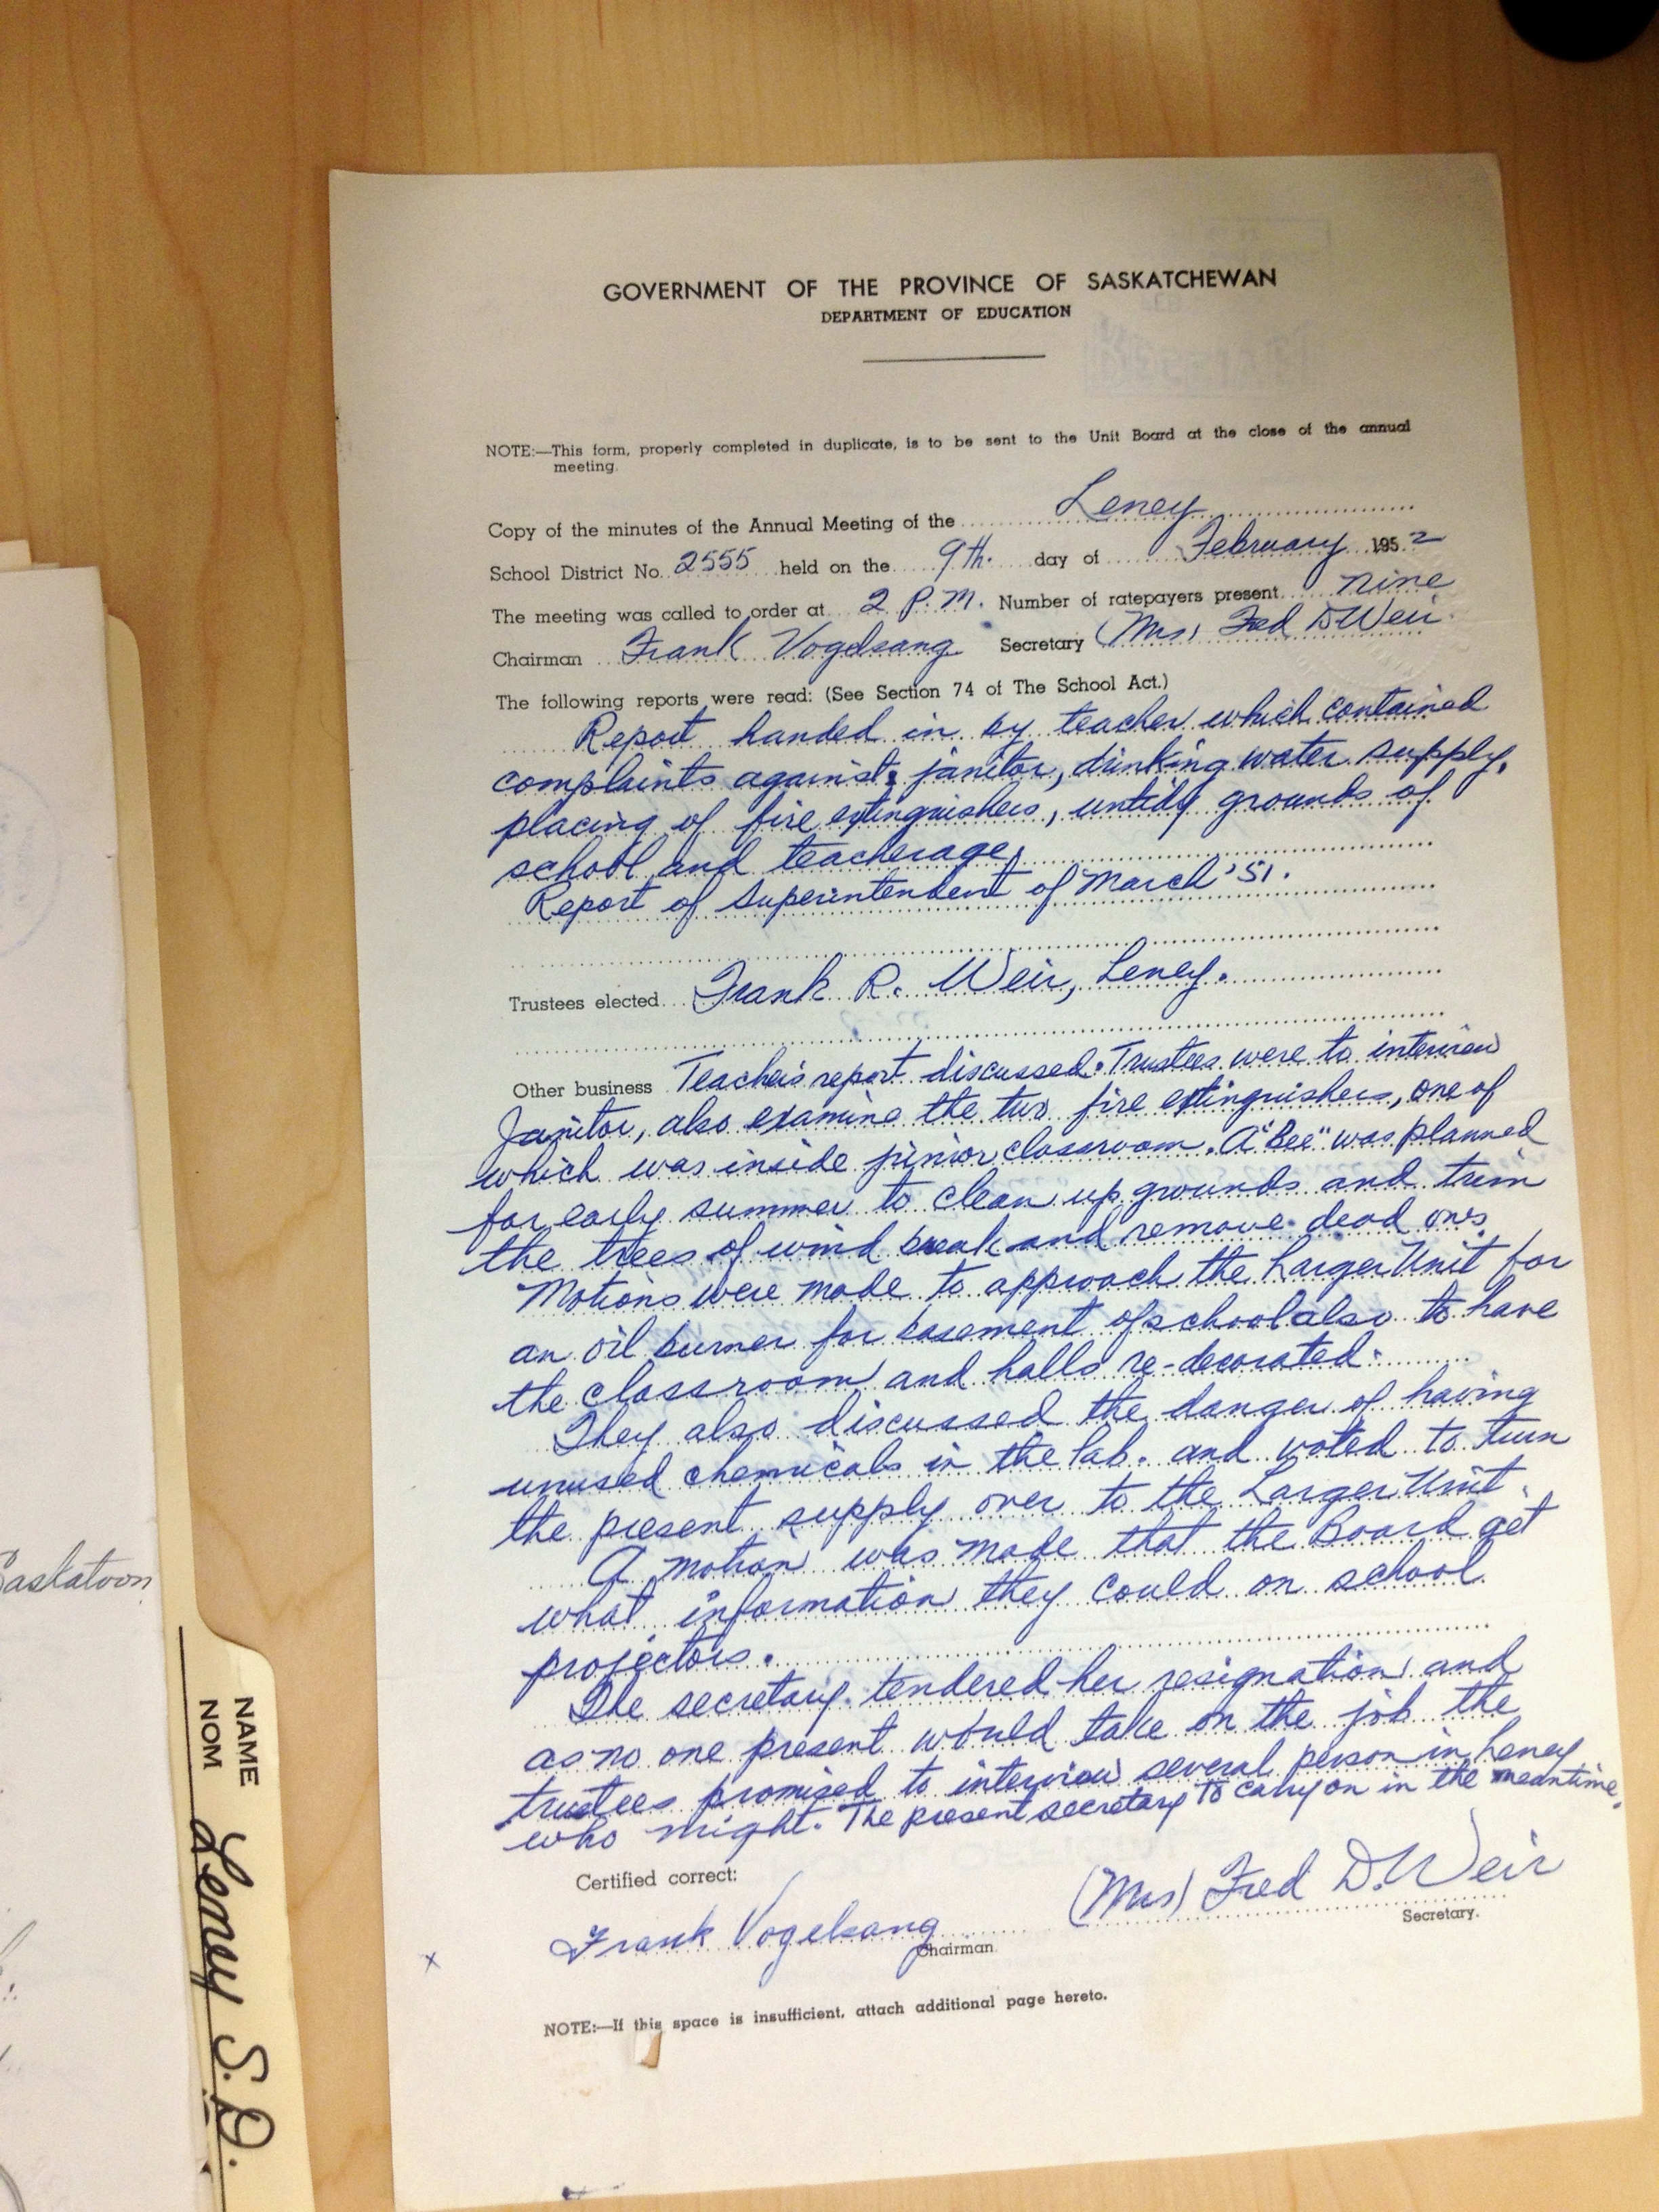 GOVERNMENT OF THE PROVINCE OF SASKATCHEWAN
DEPARTMENT OF EDUCATION
NOTE:—This form, properly completed in duplicate, is to be sent to the Unit Board at the close of the annual
meeting.
Copy of the minutes of the Annual Meeting of the Leney
School District No. 2555 held on the 9th. day of February 1952
The meeting was called to order at 2 P.M. Number of ratepayers present nine
Chairman Frank Vogelsang Secretary (Mrs) Fred D Weir
The following reports were read: (See Section 74 of The School Act.)
Report handed in by teacher which contained
complaints against: janitor, drinking water supply,
placing of fire extinguishers, untidy grounds of
school and teacherage.
Report of Superintendent of March '51.
Trustees elected Frank R. Weir, Leney.
Other business Teacher's report discussed. Trustees were to interview
Janitor, also examine the two fire extinguishers, one of
which was inside junior classroom. A "Bee" was planned
for early summer to clean up grounds and trim
the trees of wind break and remove dead ones.
Motions were made to approach the Larger Unit for
an oil burner for basement of school also to have
the classroom and halls re-decorated.
They also discussed the danger of having
unused chemicals in the lab. and voted to turn
the present supply over to the Larger Unit.
A motion was made that the Board get
what information they could on school
projectors.
The secretary tendered her resignation and
as no one present would take on the job the
trustees promised to interview several person in Leney
who might. The present secretary to carry on in the meantime.
Certified correct:
Frank Vogelsang (Mrs) Fred D. Weir
Chairman Secretary.
x
NOTE:—If this space is insufficient, attach additional page hereto.
Saskatoon
NAME
NOM
Leney S.D.